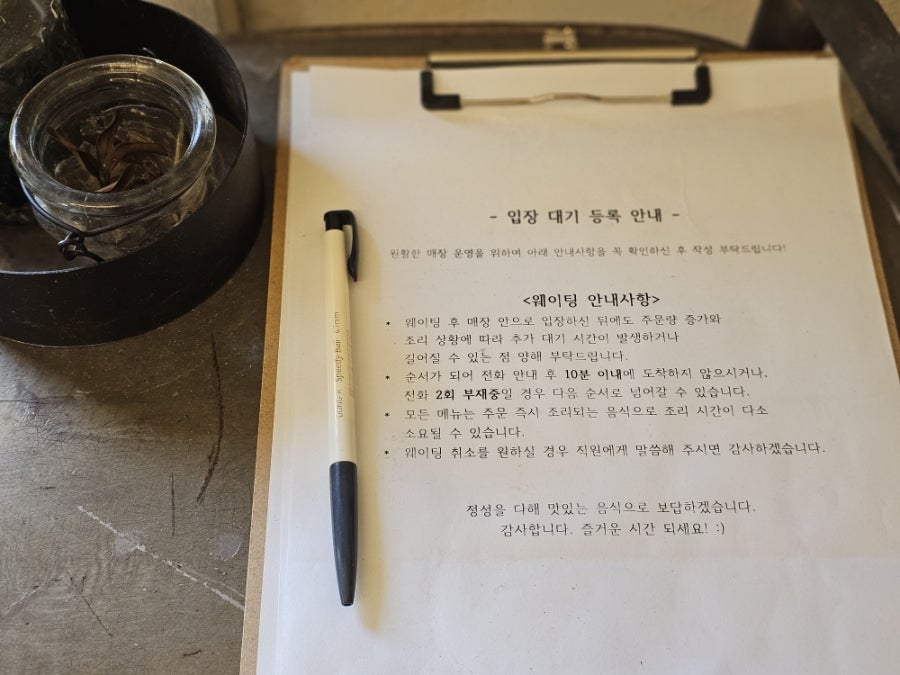 - 입장 대기 등록 안내 -
원활한 매장 운영을 위하여 아래 안내사항을 꼭 확인하신 후 작성 부탁드립니다!
<웨이팅 안내사항>
* 웨이팅 후 매장 안으로 입장하신 뒤에도 주문량 증가와
조리 상황에 따라 추가 대기 시간이 발생하거나
길어질 수 있는 점 양해 부탁드립니다.
* 순서가 되어 전화 안내 후 10분 이내에 도착하지 않으시거나,
전화 2회 부재중일 경우 다음 순서로 넘어갈 수 있습니다.
* 모든 메뉴는 주문 즉시 조리되는 음식으로 조리 시간이 다소
소요될 수 있습니다.
* 웨이팅 취소를 원하실 경우 직원에게 말씀해 주시면 감사하겠습니다.
정성을 다해 맛있는 음식으로 보답하겠습니다.
감사합니다. 즐거운 시간 되세요! :)
speedy Ball